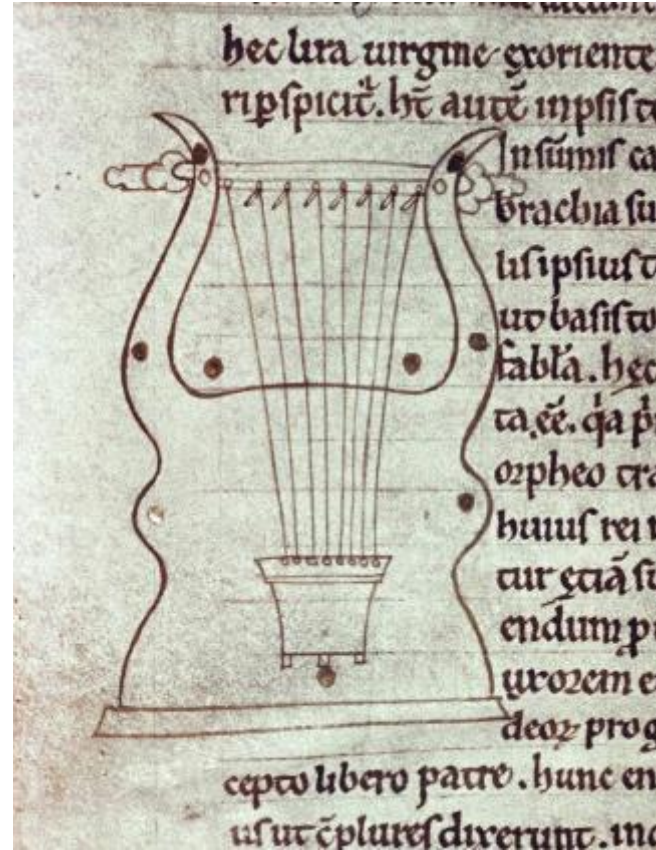 hec lira uirgine exoriente
rip̱spicit. ht̄ autē inpsis
In sūmis ca
brachia su
lis ipsius t
ut basis to
fabl̄a. hec
ta. eē. q̇a p
orpheo tra
huius rei
tur etiā
endum p
uxorem e
deoꝝ prog
cepto libero patre. hunc en
us ut c̄plures dixerunt. in